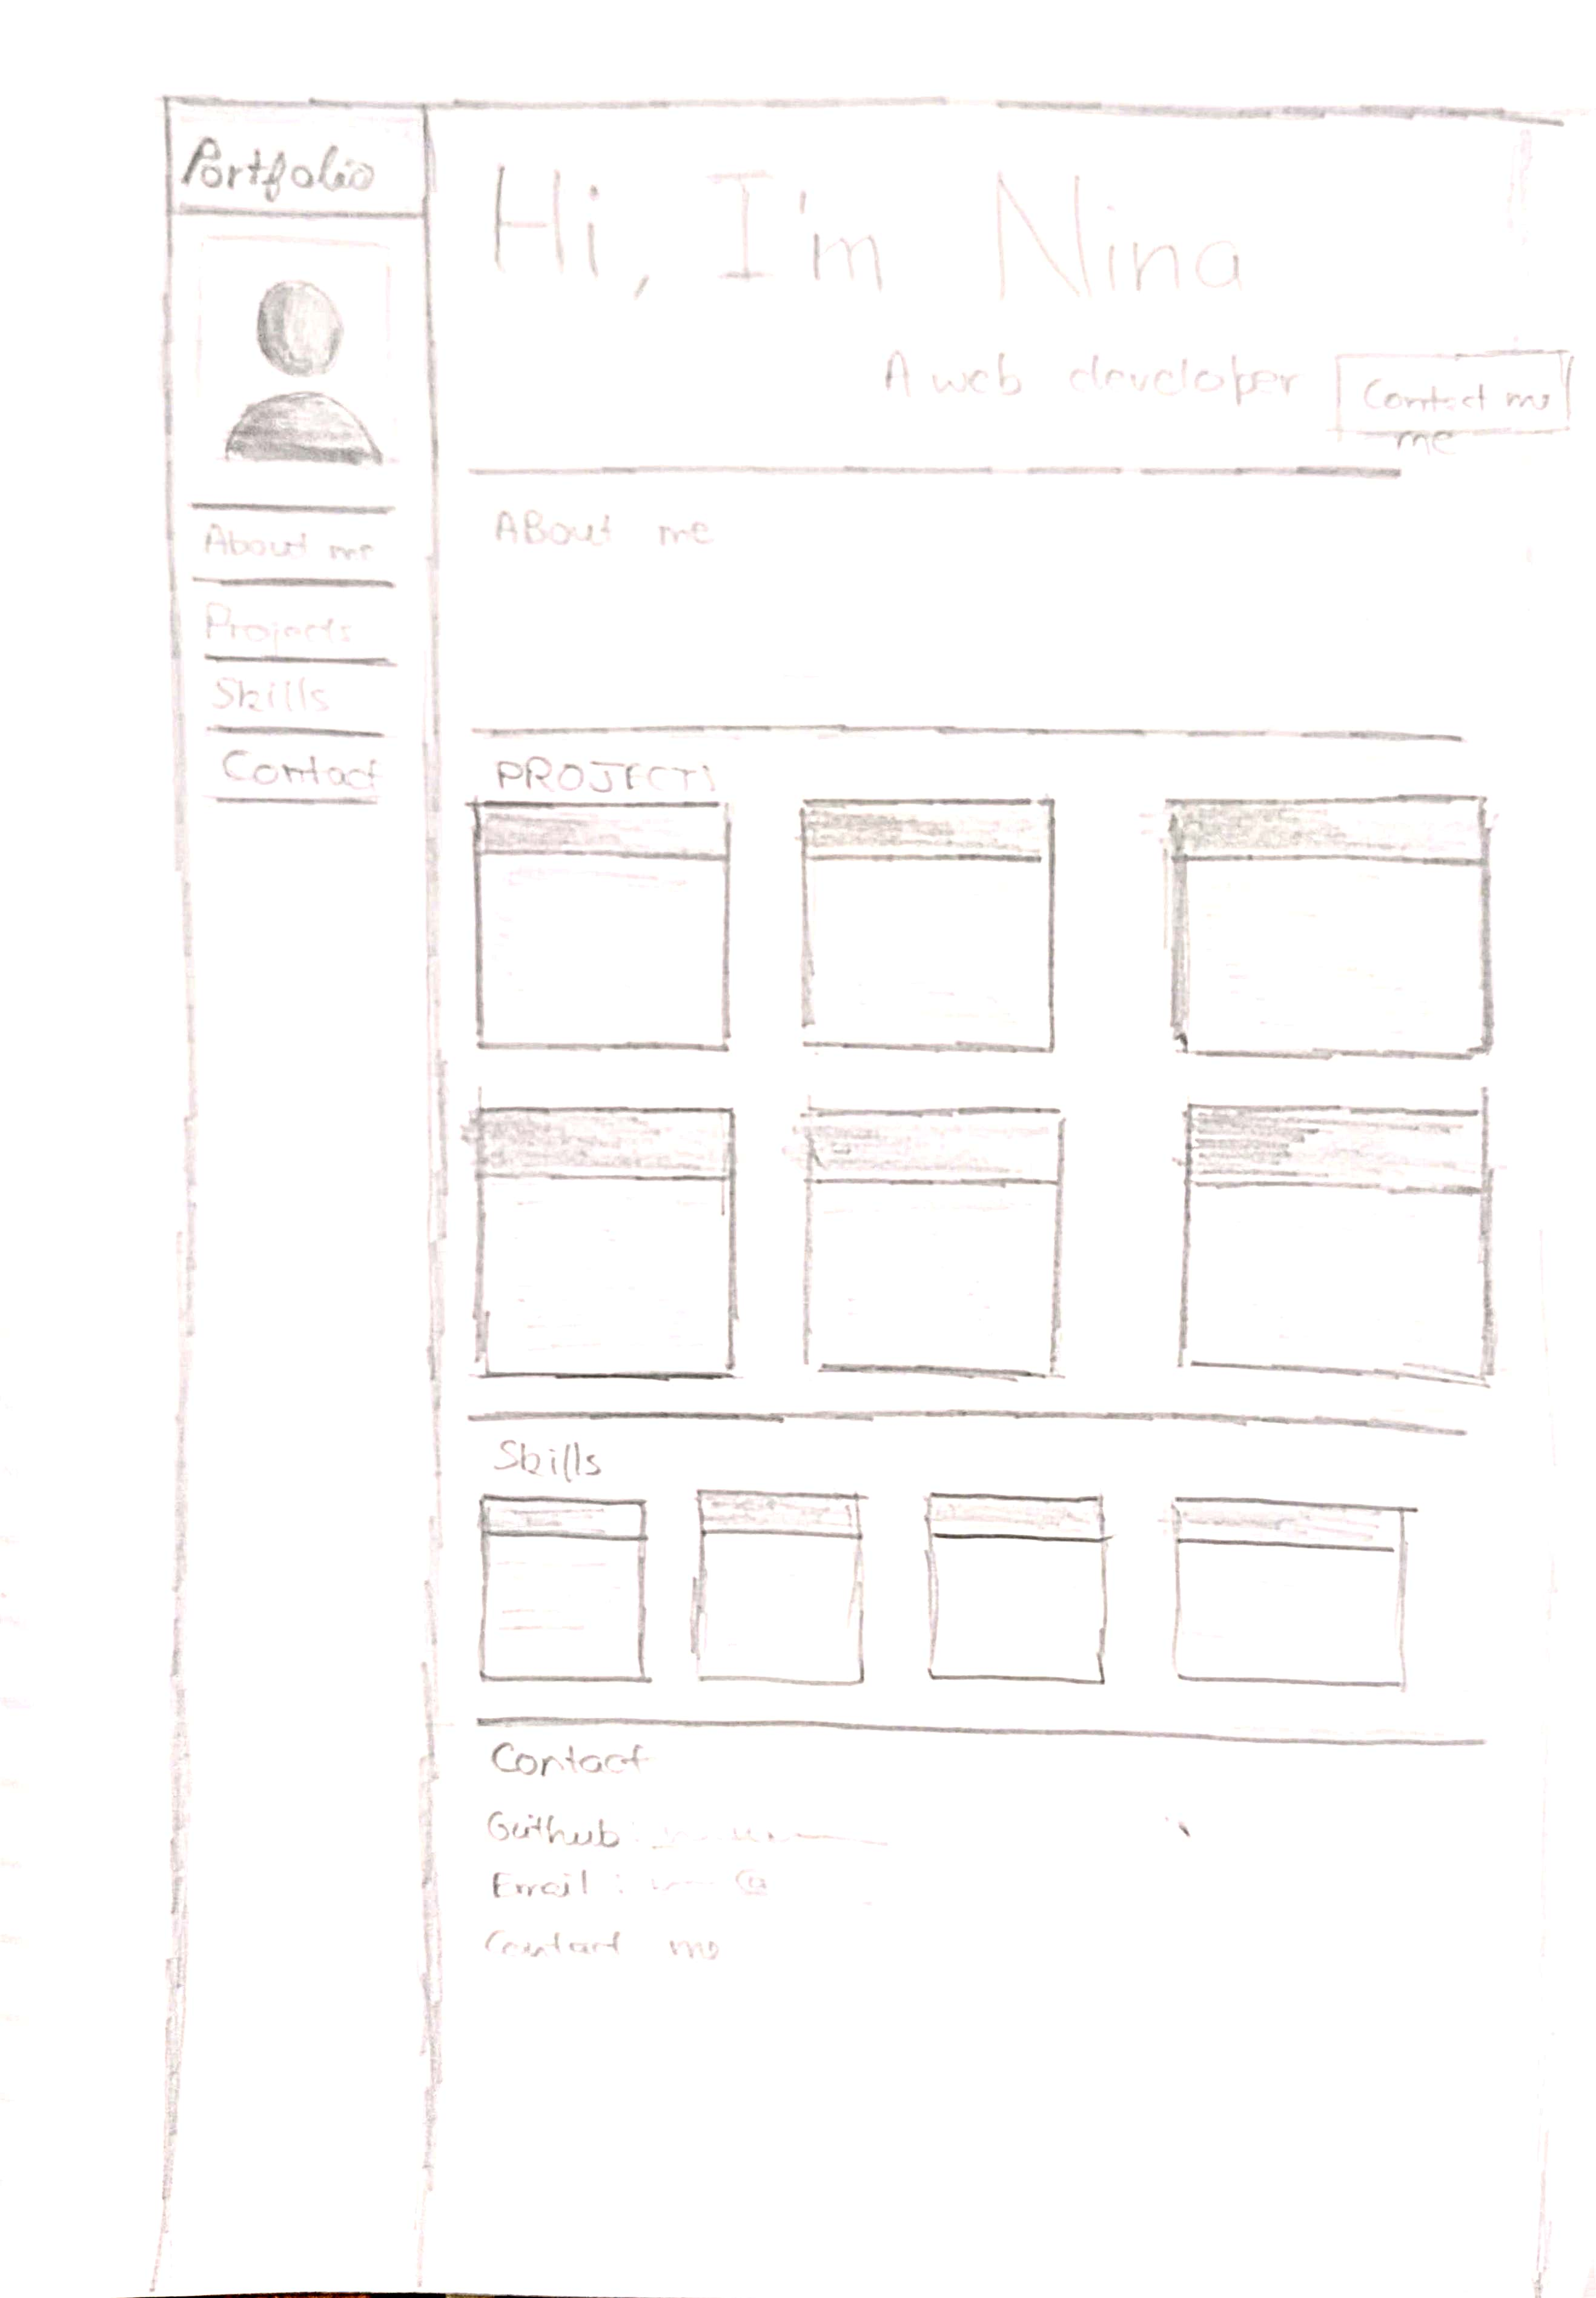 Portfolio
About me
Projects
Skills
Contact
Hi, I'm Nina
A web developer
Contact me
me
ABout me
PROJECTS
Skills
Contact
Github :
Email : @
Contact me